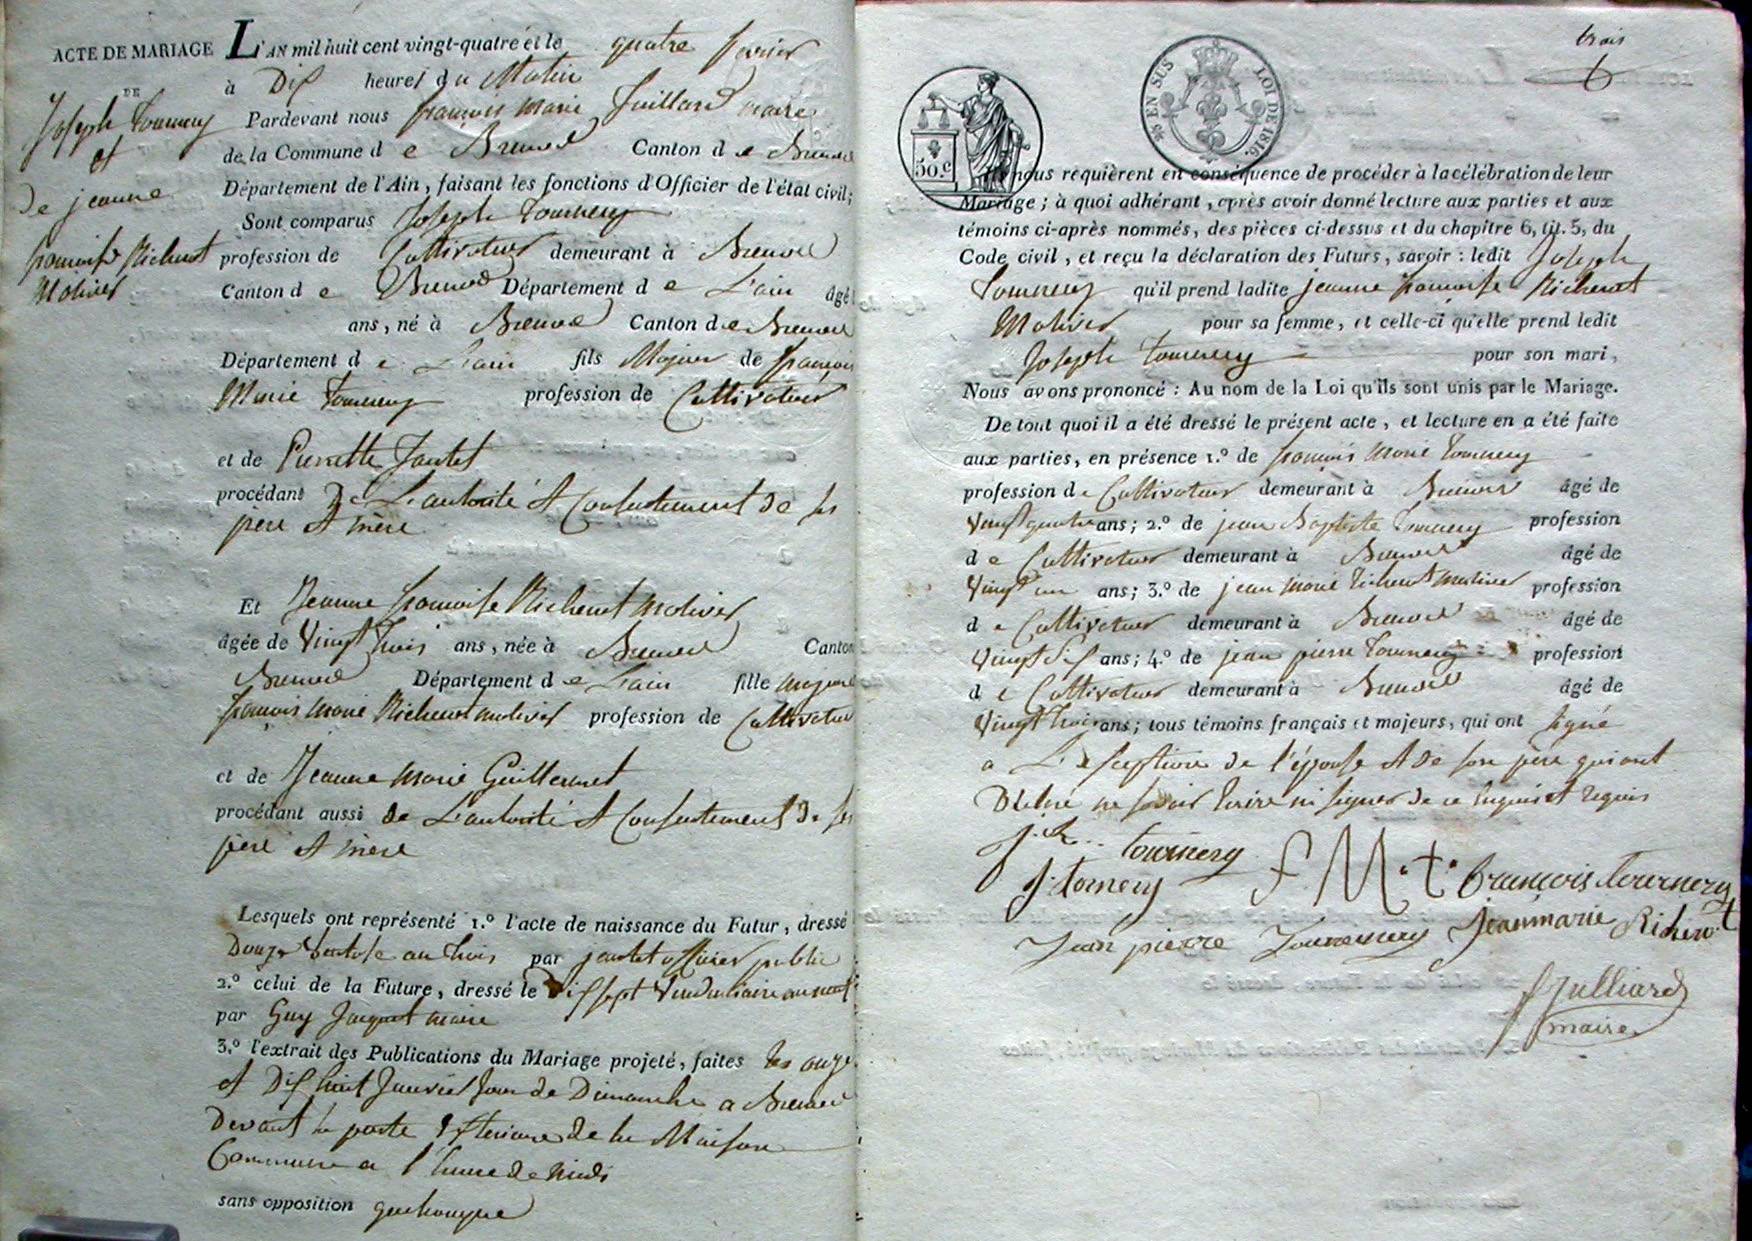 ACTE DE MARIAGE
DE
Joseph Tournery
et
de jeanne
françoise Richerot
Molivier
L'AN mil huit cent vingt-quatre et le quatre fevrier
à Dix heures du Matin
Pardevant nous françois Marie Juillard maire
de la Commune de Brenod Canton de Brenod
Département de l'Ain, faisant les fonctions d'Officier de l'état civil;
Sont comparus Joseph Tournery
profession de Cultivateur demeurant à Brenod
Canton de Brenod Département de L'ain âgé
ans, né à Brenod Canton de Brenod
Département de L'ain fils Majeur de françois
Marie Tournery profession de Cultivateur
et de Pierrette Jantet
procédant De L'autorité et Consentement de ses
père et mère
Et Jeanne françoise Richerot molivier
âgée de Vingt trois ans, née à Brenod Canton
Brenod Département de L'ain fille majeure
françois marie Richerot molivier profession de Cultivateur
et de Jeanne marie Guillermet
procédant aussi de L'autorité et Consentement de ses
père et mère
Lesquels ont représenté 1.º l'acte de naissance du Futur, dressé
Douze Ventose an trois par jantet officier public
2.º celui de la Future, dressé le Dix sept Vendemiaire an neuf
par Guy Jacquet maire
3.º l'extrait des Publications du Mariage projeté, faites les onze
et Dix huit Janvier Jour de Dimanche a Brenod
Devant la porte exterieure de la Maison
Commune a l'heure de midi
sans opposition quelconque
trois
50.c
EN SUS
LOI DE 1816.
nous requièrent en conséquence de procéder à la célébration de leur
Mariage; à quoi adhérant, après avoir donné lecture aux parties et aux
témoins ci-après nommés, des pièces ci-dessus et du chapitre 6, tit. 5, du
Code civil, et reçu la déclaration des Futurs, savoir: ledit Joseph
Tournery qu'il prend ladite jeanne françoise Richerot
Molivier pour sa femme, et celle-ci qu'elle prend ledit
Joseph Tournery pour son mari,
Nous avons prononcé: Au nom de la Loi qu'ils sont unis par le Mariage.
De tout quoi il a été dressé le présent acte, et lecture en a été faite
aux parties, en présence 1.º de françois Marie Tournery
profession de Cultivateur demeurant à Brenod âgé de
Vingt quatre ans; 2.º de jean Baptiste Tournery profession
de Cultivateur demeurant à Brenod âgé de
Vingt un ans; 3.º de jean marie Richerot molivier profession
de Cultivateur demeurant à Brenod âgé de
Vingt six ans; 4.º de jean pierre Tournery profession
de Cultivateur demeurant à Brenod âgé de
Vingt trois ans; tous témoins français et majeurs, qui ont signé
a L'exception de l'épouse et de son père qui ont
Déclaré ne savoir Ecrire ni signer de ce Enquis et requis
tournery F. M. t. francois tournery
j. tornery
Jean pierre Tournery jean marie Richerot
Julliard
maire